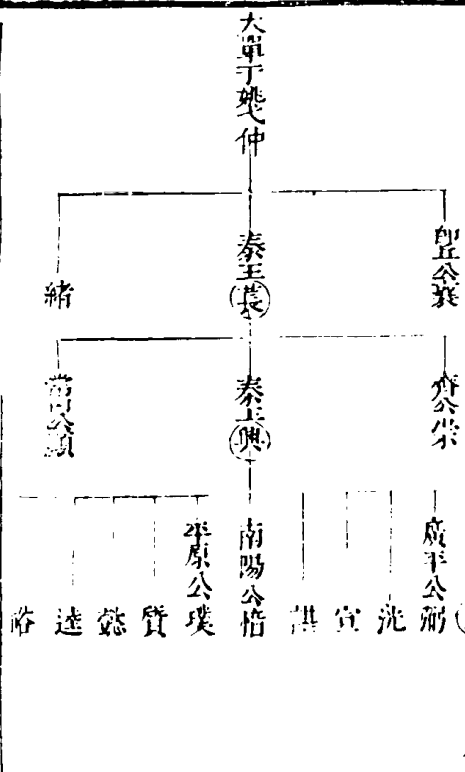 大單于姚弋仲
即丘公襄
秦王萇
緒
齊公崇
秦王興
常山公顯
廣平公弼
洸
宣
諶
南陽公愔
平原公璞
質
懿
逵
裕